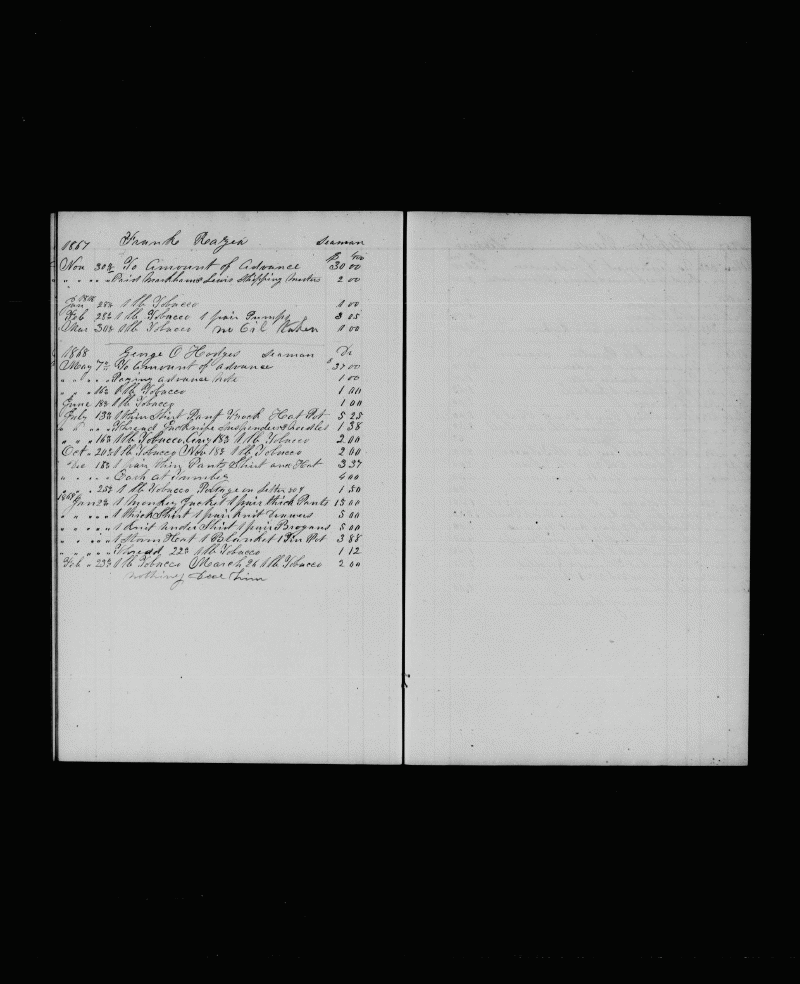 1867 Frank Seaman
$ 100
Nov 30th To Amount of Advance 30 00
" " " " Paid Markham Lewis Shipping Masters 2 00
1868
Jan 28th 1 lb Tobacco 1 00
Feb 28th 1 lb Tobacco 1 pair Pumps 3 05
Mar 30th 1 lb Tobacco no Oil Taken 1 00
1868 George O Hodges Seaman Dr
May 7th To amount of advance $ 37 00
" " " " advance note 1 00
" " 16th 1 lb Tobacco 1 00
June 18th 1 lb Tobacco 1 00
July 13th 1 thin Shirt Pant Frock Hat Pot 5 25
" " " Thread Jacknife Suspenders needles 1 38
" " 16th 1 lb Tobacco Aug 18th 1 lb Tobacco 2 00
Oct " 20th 1 lb Tobacco Nov 18th 1 lb Tobacco 2 00
Dec 18th 1 pair thin Pants Shirt and Hat 3 37
" " " " Cash at Tumbez 4 00
" " 25th 1 lb Tobacco Postage on letter 50c 1 50
1869
Jan 2d 1 monkey Jacket 1 pair thick Pants 15 00
" " " " 1 thick Shirt 1 pair knit Drawers 5 00
" " " " 1 Knit under Shirt 1 pair Brogans 5 00
" " " " 1 Storm Hat 1 Blanket 1 Tin Pot 3 88
" " " " Thread 22d 1 lb Tobacco 1 12
Feb " 23d 1 lb Tobacco March 26 1 lb Tobacco 2 00
nothing Due him